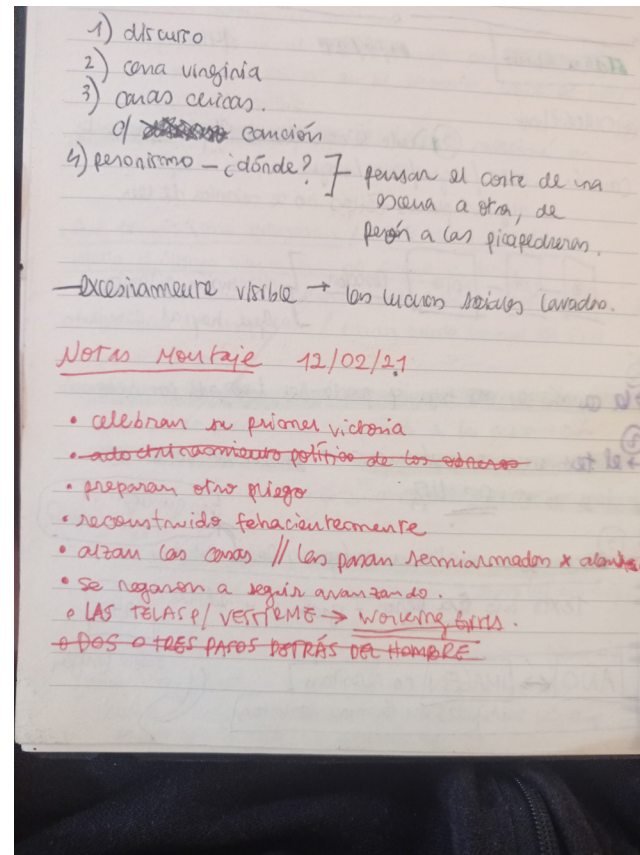 1) discurso
2) cena virginia
3) caras chicas.
c/ canción
4) peronismo – ¿dónde? ] – pensar el corte de una
escena a otra, de
perón a las picapedreras.
– excesivamente visible → las luchas sociales lavados.
NOTAS MONTAJE 12/02/21
• celebran su primer victoria
• adoctrinamiento político de los obreros
• preparan otro pliego
• reconstruido fehacientemente
• alzan las casas // les pasan semiarmados x
• se negaron a seguir avanzando.
• LAS TELAS P/ VESTIRME → WORKING GIRLS.
• DOS O TRES PASOS DETRÁS DEL HOMBRE